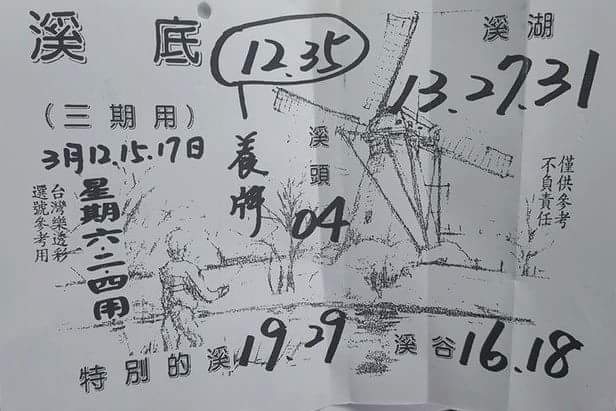 溪底
12.35
溪湖
13.27.31
(三期用)
3月12.15.17日
養牌
溪頭
04
僅供參考
不負責任
台灣樂透彩
選號參考用
星期六.二.四用
特別的溪 19.29
溪谷 16.18